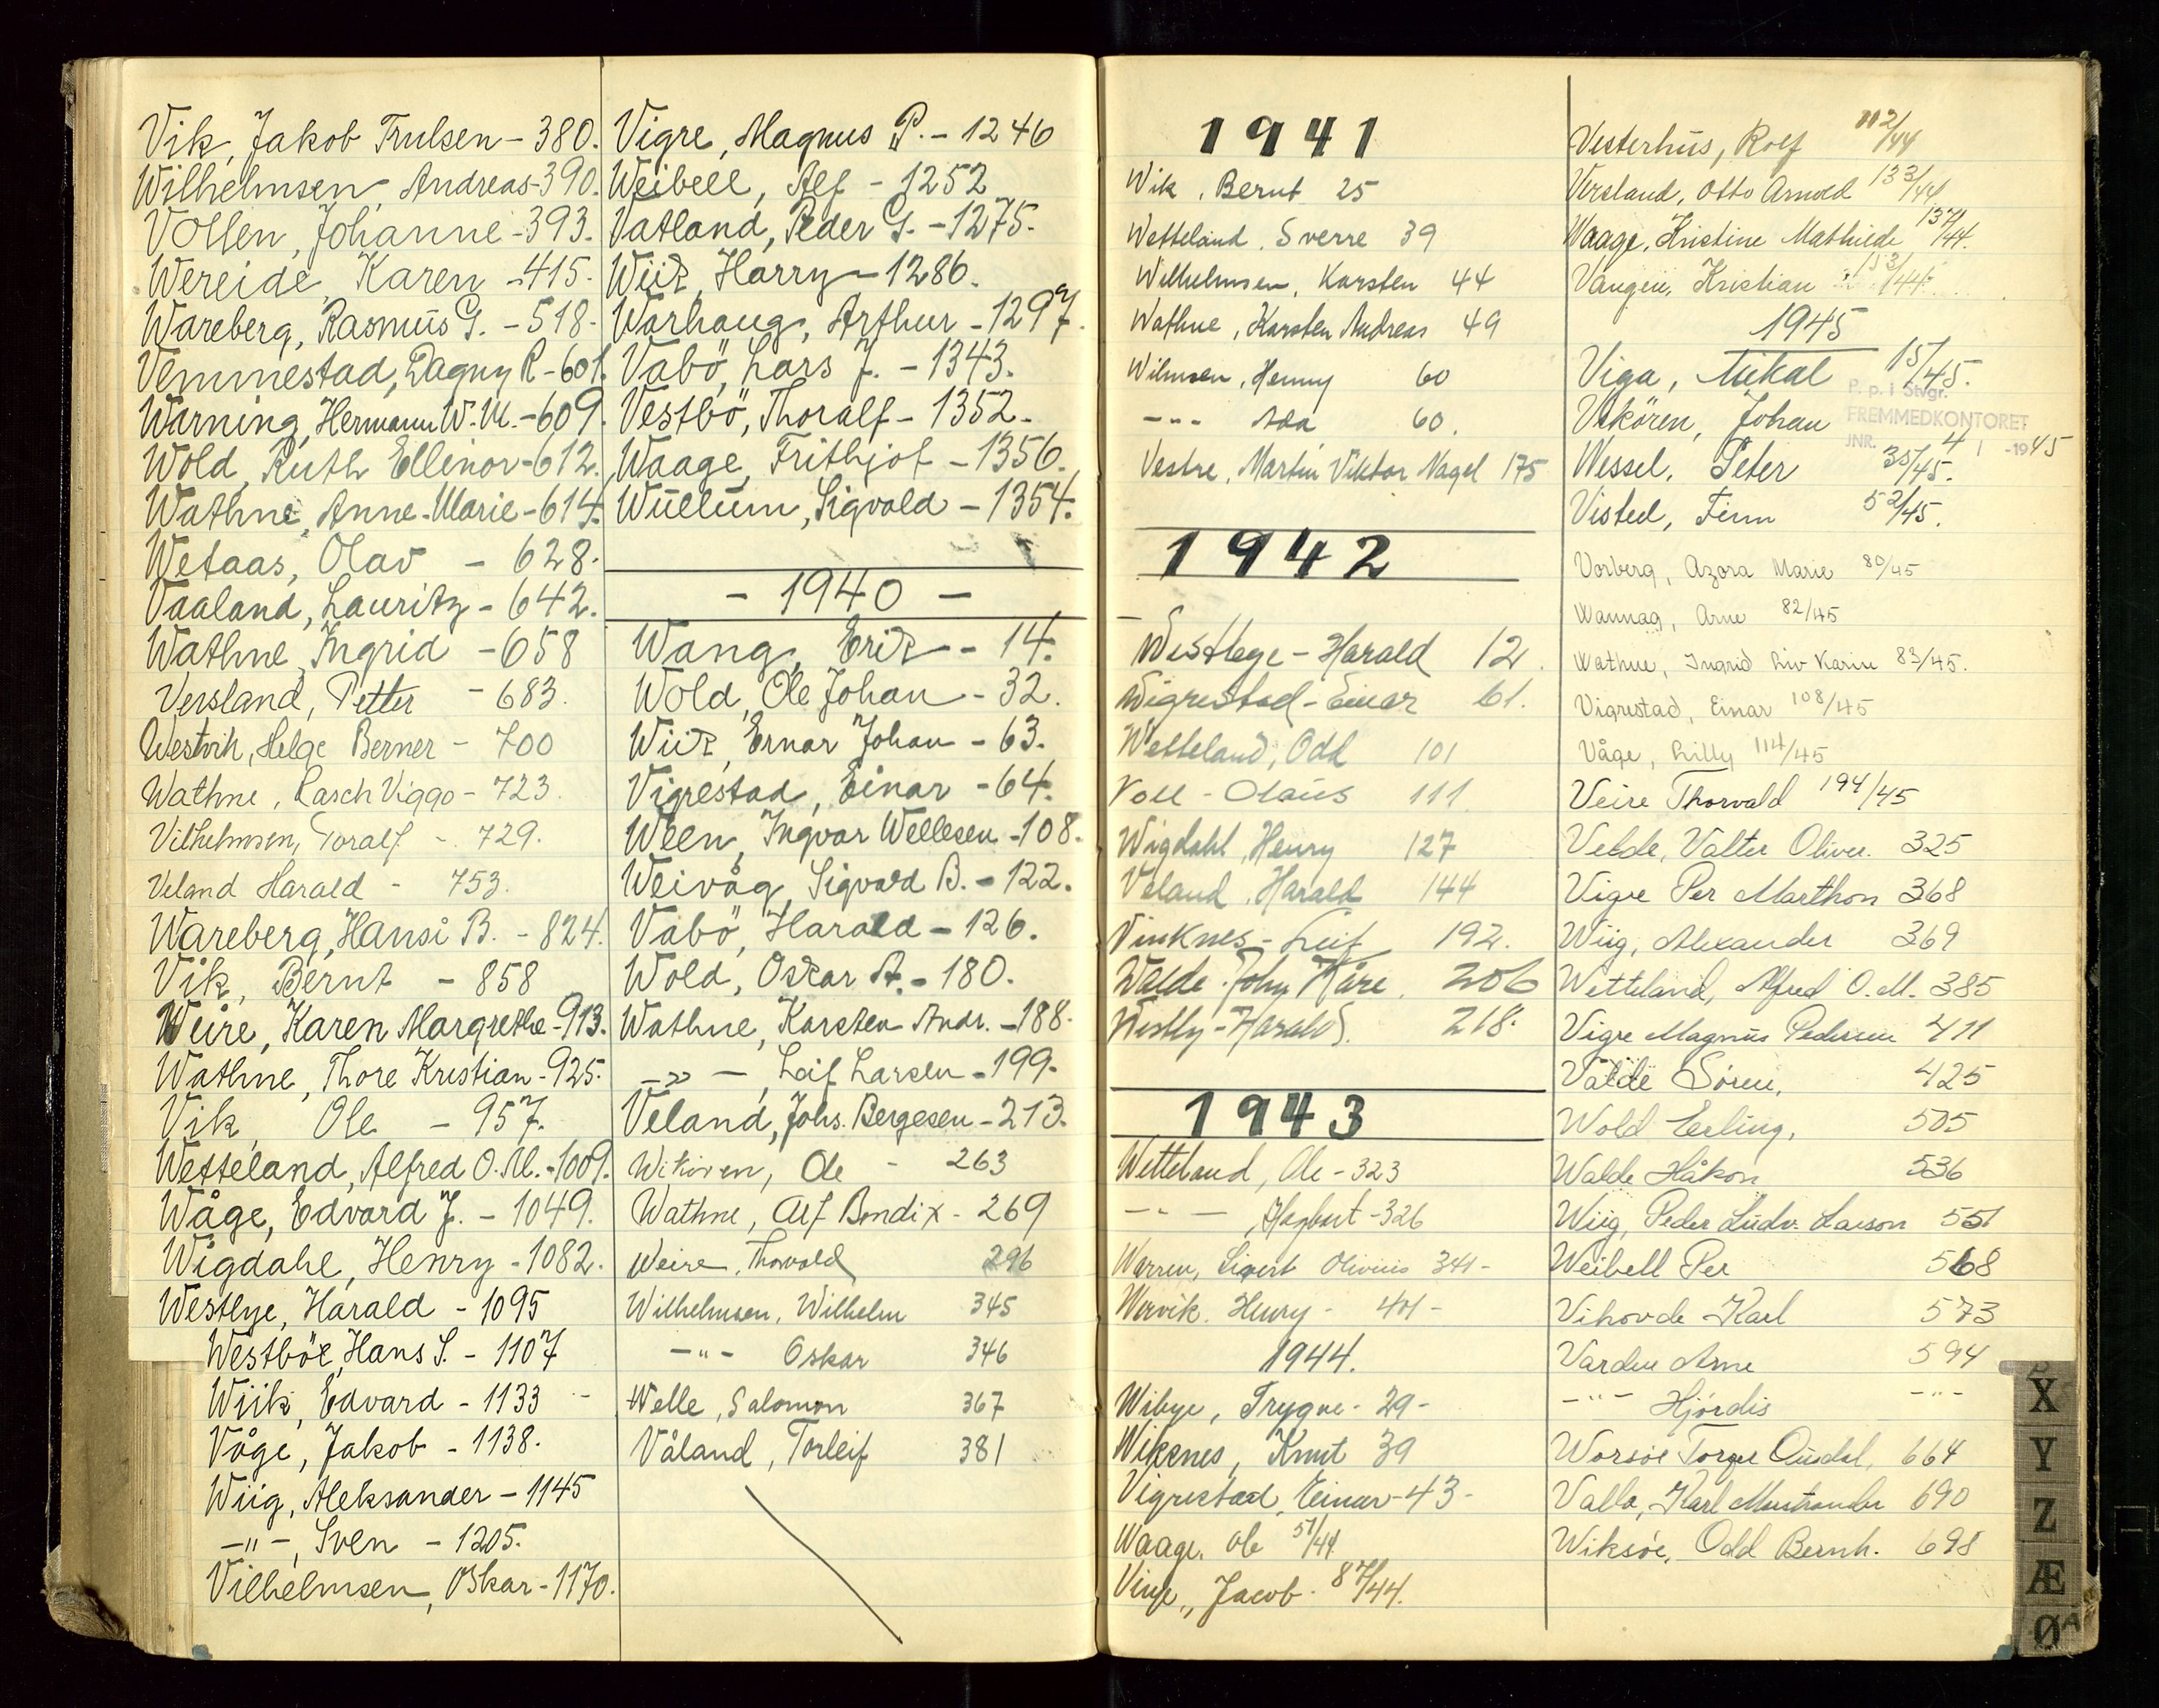 Vik, Jakob Trulsen - 380.
Wilhelmsen, Andreas - 390.
Vollen, Johanne - 393.
Wereide, Karen - 415.
Wareberg, Rasmus G. - 518.
Vemmestad, Dagny R - 601.
Warning, Hermann W. M. - 609.
Wold, Ruth Ellinor - 612.
Wathne, Anne-Marie - 614.
Wetaas, Olav - 628.
Vaaland, Lauritz - 642.
Wathne, Ingrid - 658
Versland, Petter - 683.
Westvik, Helge Berner - 700
Wathne, Rasch Viggo - 723.
Vilhelmsen, Toralf - 729.
Veland Harald - 753.
Wareberg, Hansi B. - 824.
Vik, Bernt - 858
Weire, Karen Margrethe - 913.
Wathne, Thore Kristian - 925.
Vik, Ole - 957.
Wetteland, Alfred O. M. - 1009.
Wåge, Edvard J. - 1049.
Wigdahl, Henry - 1082.
Westlye, Harald - 1095
Westböe, Hans S. - 1107
Wiik, Edvard - 1133 -
Våge, Jakob - 1138.
Wiig, Aleksander - 1145
-"-, Sven - 1205.
Vilhelmsen, Oskar - 1170.
Vigre, Magnus P. - 1246
Weibell, Alf - 1252
Vatland, Peder G. - 1275.
Wiik, Harry - 1286.
Varhaug, Arthur - 1297.
Vabö, Lars J. - 1343.
Vestbö, Thoralf - 1352.
Waage, Frithjof - 1356.
Wullum, Sigvald - 1354.
- 1940 -
Wang, Erik - 14.
Wold, Ole Johan - 32.
Wiik, Ernar Johan - 63.
Vigrestad, Einar - 64.
Ween, Ingvar Wellesen - 108.
Weivåg, Sigvard B. - 122.
Vabö, Harald - 126.
Wold, Oskar A. - 180.
Wathne, Karsten Andr. - 188.
-"-, Leif Larsen - 199.
Veland, Johs. Bergesen - 213.
Wikören, Ole - 263
Wathne, Alf Bendix - 269
Weire, Thorvald 296
Wilhelmsen, Wilhelm 345
-"- Oskar 346
Welle, Salomon 367
Våland, Torleif 381
1941
Wik, Bernt 25
Wetteland, Sverre 39
Wilhelmsen, Karsten 44
Wathne, Karsten Andreas 49
Wilmsen, Henny 60
-"- Ada 60.
Vestre, Martin Viktor Nagel 175
1942
Westlye - Harald 12.
Wigrestad - Einar 61.
Wetteland, Odd 101
Voll - Olaus 111
Wigdahl, Henry 127
Veland, Harald 144
Vinknes - Leif 192.
Walde. John Kåre. 206
Westly - Harald. 218.
1943
Wetteland, Ole - 323
-"-, Hagbart - 326
Warren, Sigvert Olivius 341 -
Wervik. Henry - 401 -
1944.
Wibye, Trygve - 29 -
Wiksnes, Knut 39
Vigrestad, Einar - 43 -
Waage, Ole 51/44
Vinje, Jacob. 87/44.
Vesterhus, Rolf 112/44
Versland, Otto Arnold 133/44
Waage, Kristine Mathilde 137/44.
Vangen, Kristian 153/44
1945
Viga, Mikal 15/45.
P. p. i Stvgr.
Vikören, Johan
FREMMEDKONTORET
JNR. 4/1 -1945
Wessel, Peter 35/45.
Visted, Finn 52/45.
Vorberg, Azora Marie 80/45
Wannag, Arne 82/45
Wathne, Ingrid Liv Karin 83/45.
Vigrestad, Einar 108/45
Våge, Lilly 114/45
Veire Thorvald 194/45
Velde, Valter Oliver. 325
Vigre Per Marthon 368
Wiig, Alexander 369
Wetteland, Alfred O. M. 385
Vigre Magnus Pedersen 411
Valde Sören, 425
Wold Erling, 505
Walde Håkon 536
Wiig, Peder Ludv. Larson 551
Weibell Per 568
Vihovde Karl 573
Varden Arne 594
-"- Hjördis -"-
Worsöe Torger Ousdal, 664
Valla, Karl Mostrander 690
Wiksöe, Odd Bernh. 698
X
Y
Z
Æ
Ø